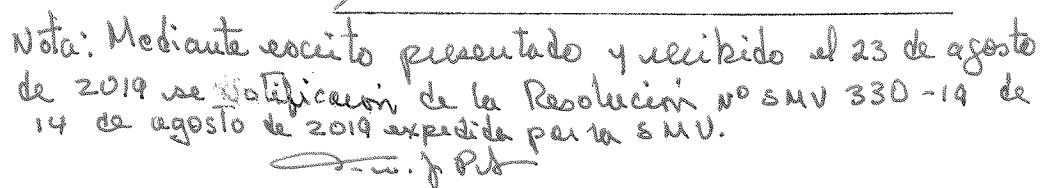 Nota: Mediante escrito presentado y recibido el 23 de agosto
de 2019 se Notificaron de la Resolución Nº SMV 330-19 de
14 de agosto de 2019 expedida por la SMV.